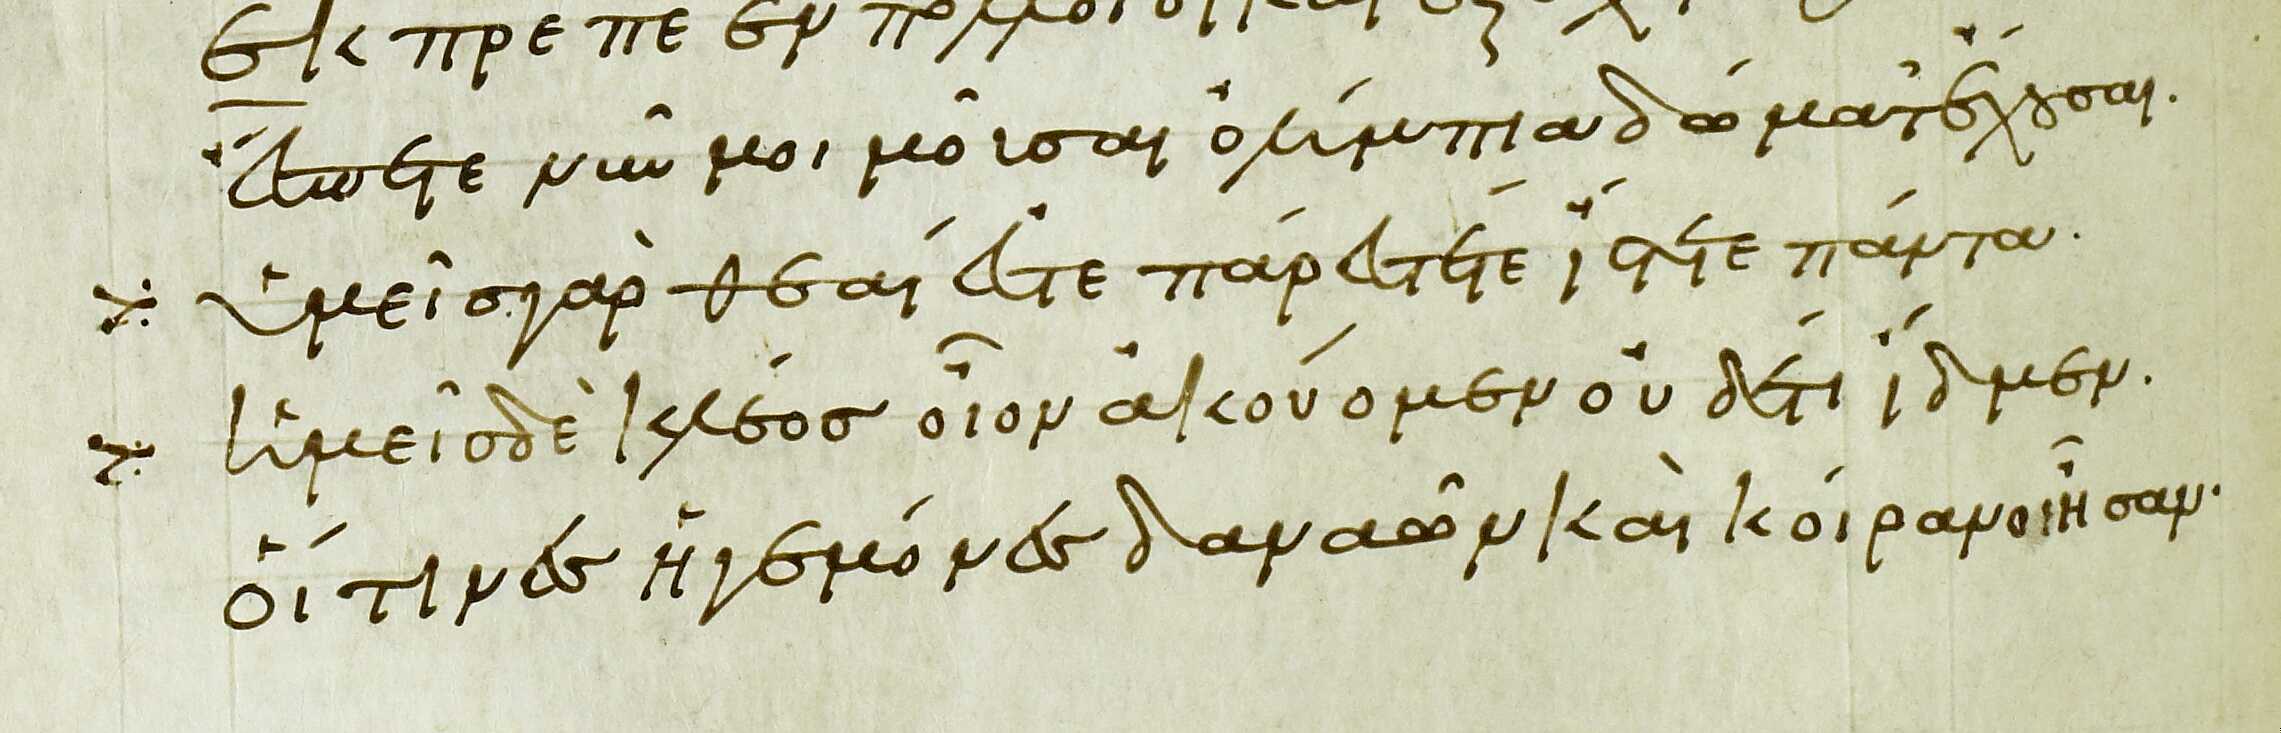 ἐκπρεπε ἐν πολλοισι και ἐξοχ
ἔσπετε νῦν μοι μοῦσαι ὀλύμπια δώματ' ἔχουσαι.
ὑμεῖς γὰρ θεαί ἐστε πάρεστέ τε ἴστέ τε πάντα.
ἡμεῖς δὲ κλέος οἶον ἀκούομεν οὐδέ τι ἴδμεν.
οἵ τινες ἡγεμόνες δαναῶν καὶ κοίρανοι ἦσαν·